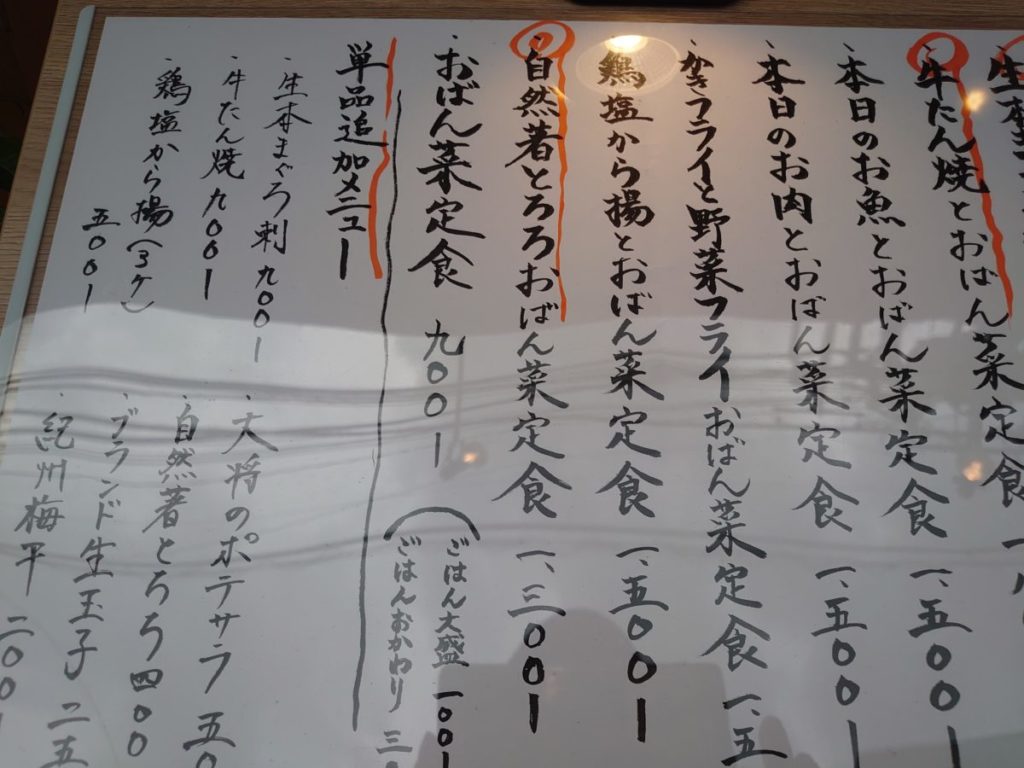 生本
、牛たん焼とおばん菜定食 一、五〇〇ー
、本日のお魚とおばん菜定食 一、五〇〇ー
、本日のお肉とおばん菜定食 一、五〇〇ー
、かきフライと野菜フライおばん菜定食 一、五
、鶏塩から揚とおばん菜定食 一、五〇〇ー
、自然薯とろろおばん菜定食 一、三〇〇ー
、おばん菜定食 九〇〇ー
ごはん大盛 一〇〇ー
ごはんおかわり 三〇
単品追加メニュー
、生本まぐろ刺 九〇〇ー
、牛たん焼 九〇〇ー
、鶏塩から揚(3ケ)
五〇〇ー
、大将のポテサラ 五〇
、自然薯とろろ 四〇〇
、ブランド生玉子 二五
、紀州梅干 二〇〇ー